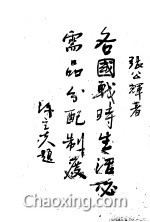 張公輝著
各國戰時生活必
需品分配制度
陳立夫題
Chaoxing.com